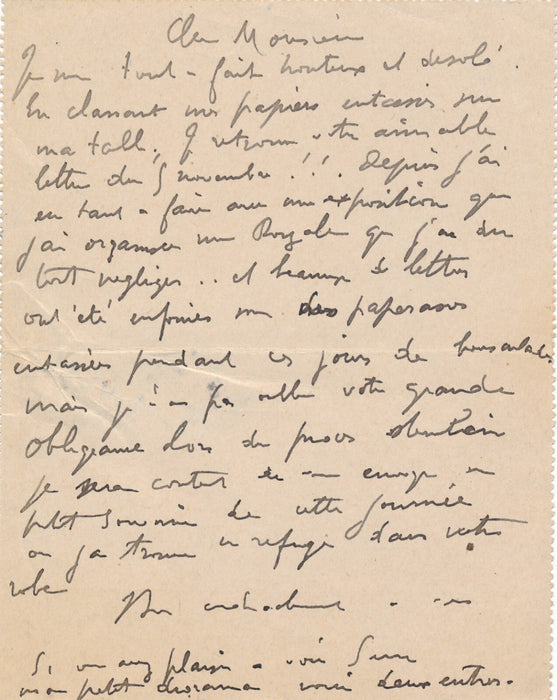 Cher Monsieur
Je suis tout à fait honteux et désolé.
En classant mes papiers entassés sur
ma table, je retrouve votre aimable
lettre du 5 novembre !!! Depuis j'ai
eu tant à faire avec une exposition que
j'ai organisée rue Royale que j'ai du
tout négliger .. et beaucoup de lettres
ont été enfouies sous des paperasses
entassées pendant ces jours de bousculade
mais je n'ai pas oublié votre grande
obligeance lors du procès
je serai content de vous envoyer un
petit souvenir de cette journée
où j'ai trouvé un refuge dans votre
robe
Bien cordialement à vous
Si vous avez plaisir à voir
mon petit diorama voici deux entrées.